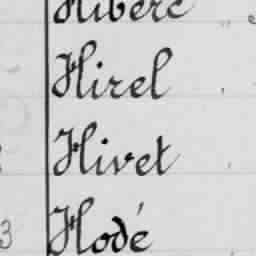 Hirel
Hivet
3 Hodé